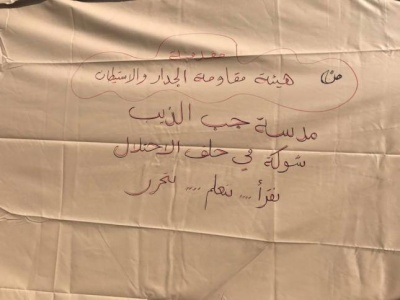 هيئة مقاومة الجدار والاستيطان
مدرسة جب الذيب
شوكة في حلق الاحتلال
نقرأ .... نتعلم .... نتحرر